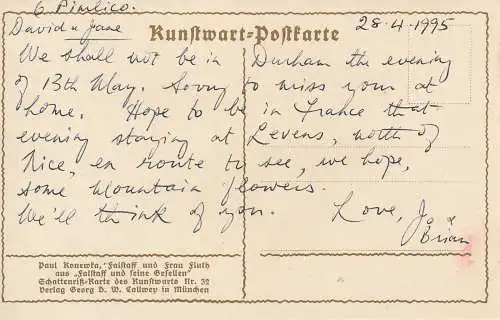 6 Pimlico.
David & Jane
Kunstwart-Postkarte
28-4-1995
We shall not be in Durham the evening
of 13th May. Sorry to miss you at
home. Hope to be in France that
evening staying at Levens, north of
Nice, en route to see, we hope,
some mountain flowers.
We'll think of you. Love, Jo &
Brian
Paul Konewka, "Falstaff und Frau Fluth
aus „Falstaff und seine Gesellen"
Schattenriß-Karte des Kunstwarts Nr. 32
Verlag Georg D. W. Callwey in München